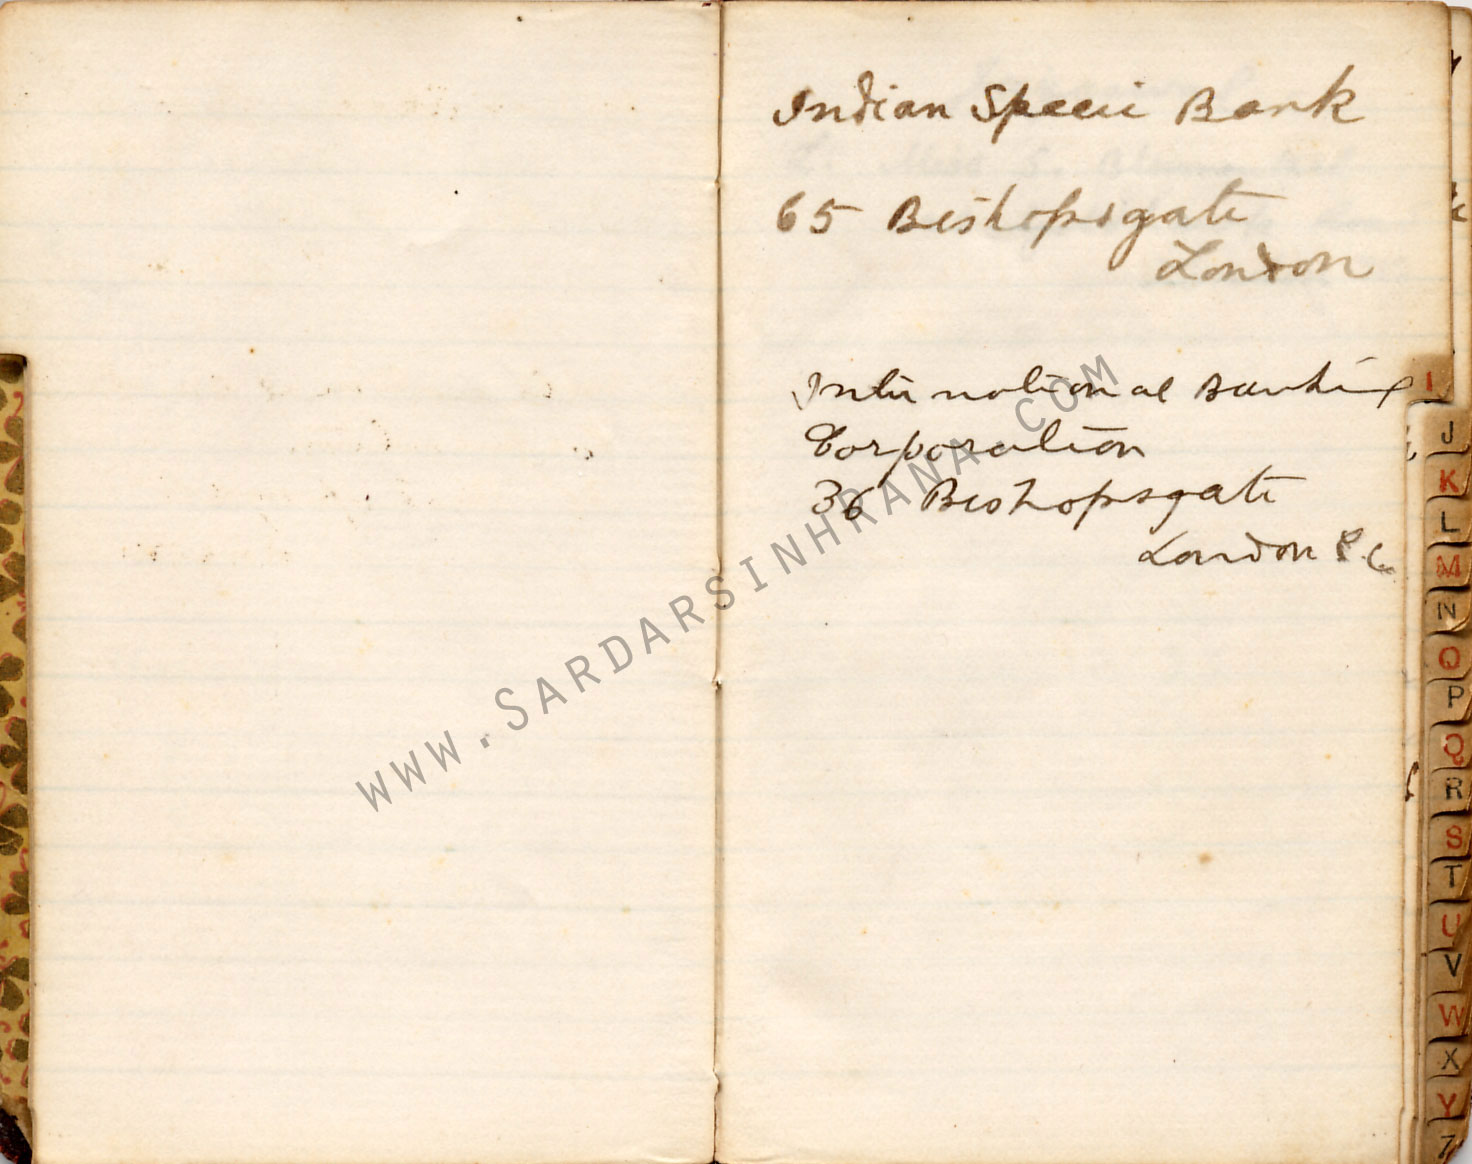 Indian Specie Bank
65 Bishopsgate
London
International Banking
Corporation
36 Bishopsgate
London
www.SARDARSINHRANA.COM
I
J
K
L
M
N
O
P
Q
R
S
T
U
V
W
X
Y
Z